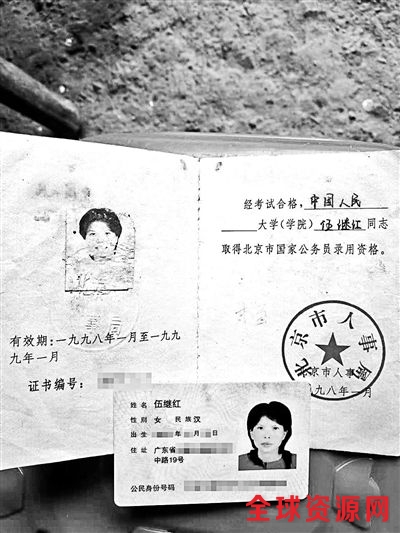 经考试合格，中国人民
大学(学院)伍继红同志
取得北京市国家公务员录用资格。
有效期：一九九八年一月至一九九
九年一月
证书编号：
北京市人事局
京市人事
九八年一月
姓名 伍继红
性别 女 民族 汉
出生 年 月 日
住址 广东省
中路19号
公民身份号码
全球资源网